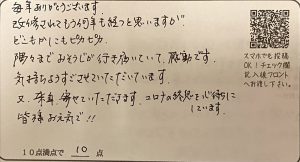 毎年ありがとうございます。
改修されてもう何年も経つと思いますが
どこもかしこもピカピカ
隅々までおそうじが行き届いていて、感動です。
気持ちよくすごさせていただいています。
又、来年、寄せていただきます。コロナの終息を心待ちに
しています。
皆様お元気で!!
10点満点で 10 点
スマホでも投稿
OK!チェック欄
記入後フロント
へお渡し下さい。